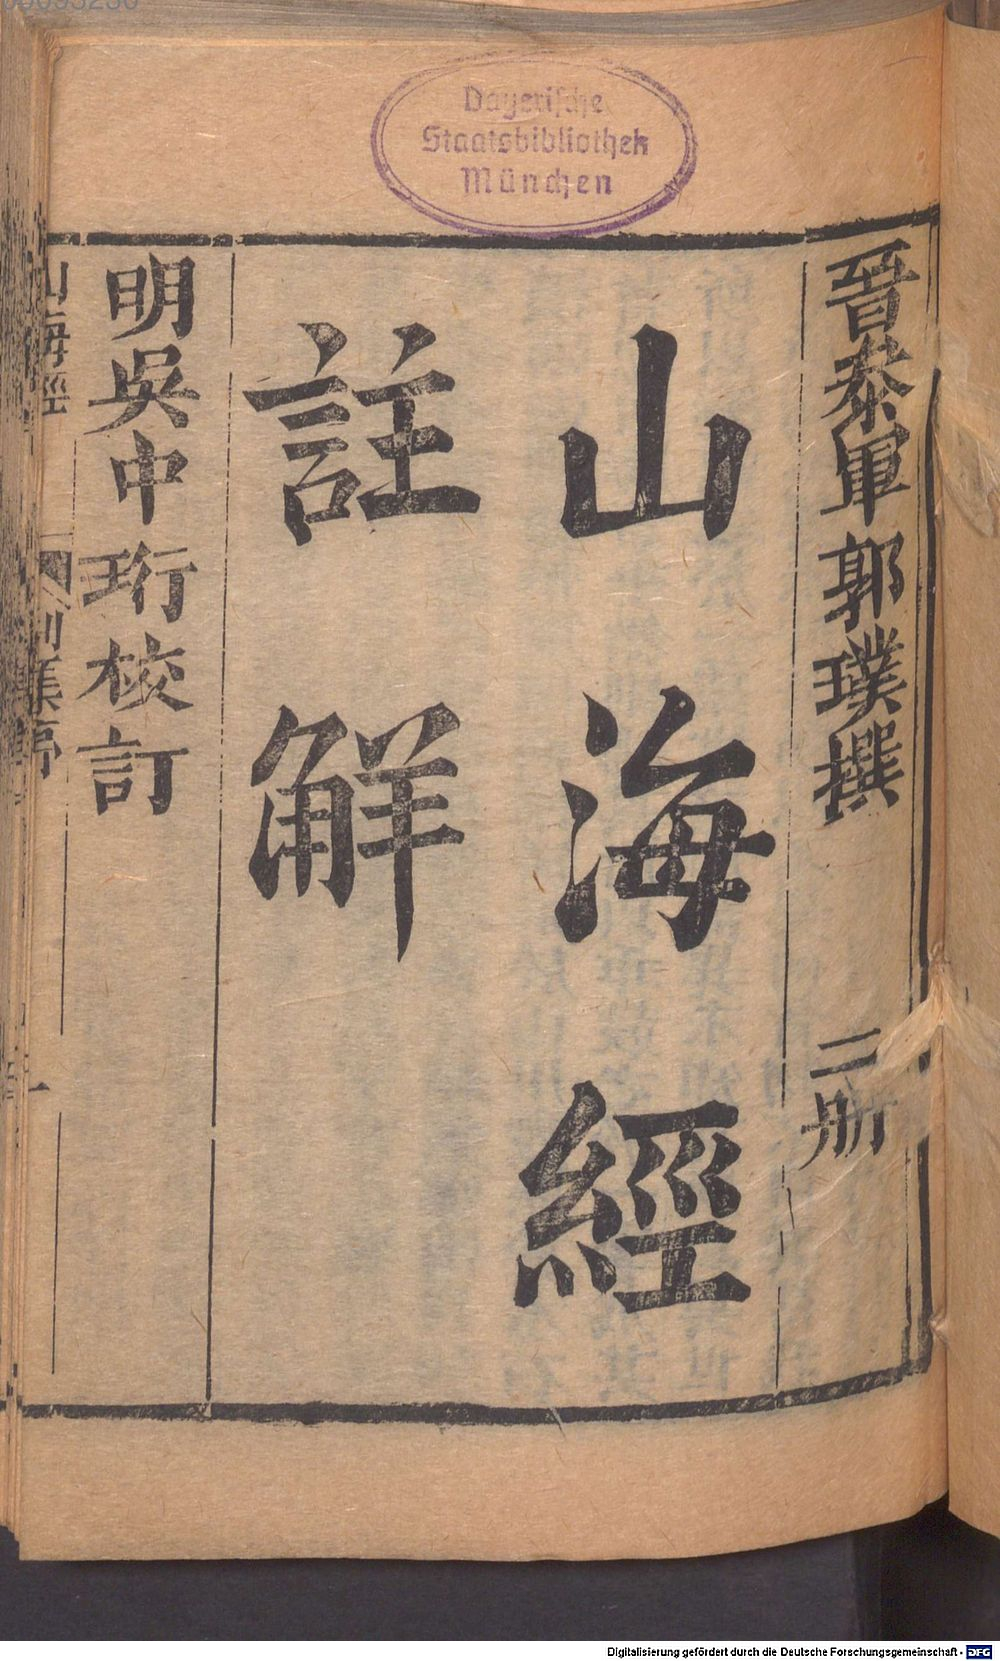 Bayerische
Staatsbibliothek
München
晉叅軍郭璞撰 二册
山海經
註解
明吳中珩校訂
山海經
Digitalisierung gefördert durch die Deutsche Forschungsgemeinschaft - DFG